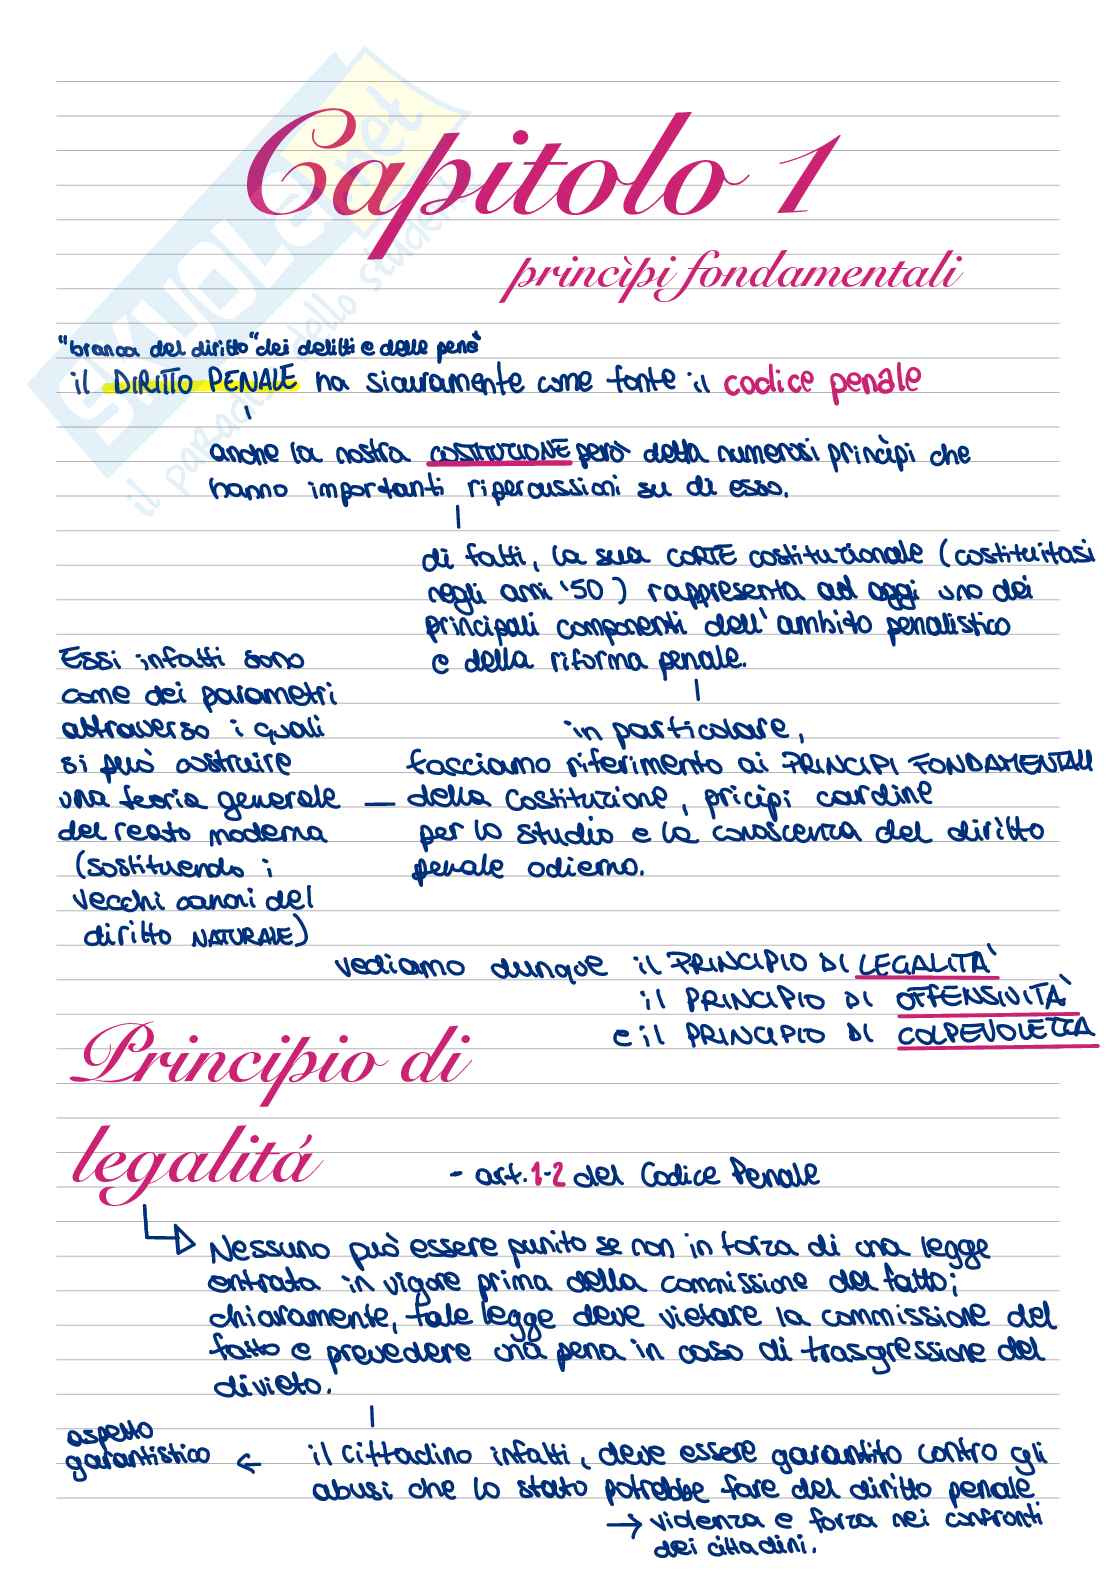 Capitolo 1
princìpi fondamentali
SKUOLA.net
il paradiso dello studente
"branca del diritto "dei delitti e delle pene"
il DIRITTO PENALE ha sicuramente come fonte il codice penale
anche la nostra COSTITUZIONE però detta numerosi princìpi che
hanno importanti ripercussioni su di esso.
di fatti, la sua CORTE costituzionale (costituitasi
negli anni '50) rappresenta ad oggi uno dei
principali componenti dell'ambito penalistico
e della riforma penale.
in particolare,
facciamo riferimento ai PRINCIPI FONDAMENTALI
della Costituzione, pricìpi cardine
per lo studio e la conoscenza del diritto
penale odierno.
Essi infatti sono
come dei parametri
attraverso i quali
si può costruire
una teoria generale
del reato moderna
(sostituendo i
vecchi canoni del
diritto NATURALE)
vediamo dunque il PRINCIPIO DI LEGALITA'
il PRINCIPIO DI OFFENSIVITA'
e il PRINCIPIO DI COLPEVOLEZZA
Principio di
legalitá
- art. 1-2 del Codice Penale
Nessuno può essere punito se non in forza di una legge
entrata in vigore prima della commissione del fatto;
chiaramente, tale legge deve vietare la commissione del
fatto e prevedere una pena in caso di trasgressione del
divieto.
il cittadino infatti, deve essere garantito contro gli
abusi che lo stato potrebbe fare del diritto penale
→ violenza e forza nei confronti
dei cittadini.
aspetto
garantistico ←